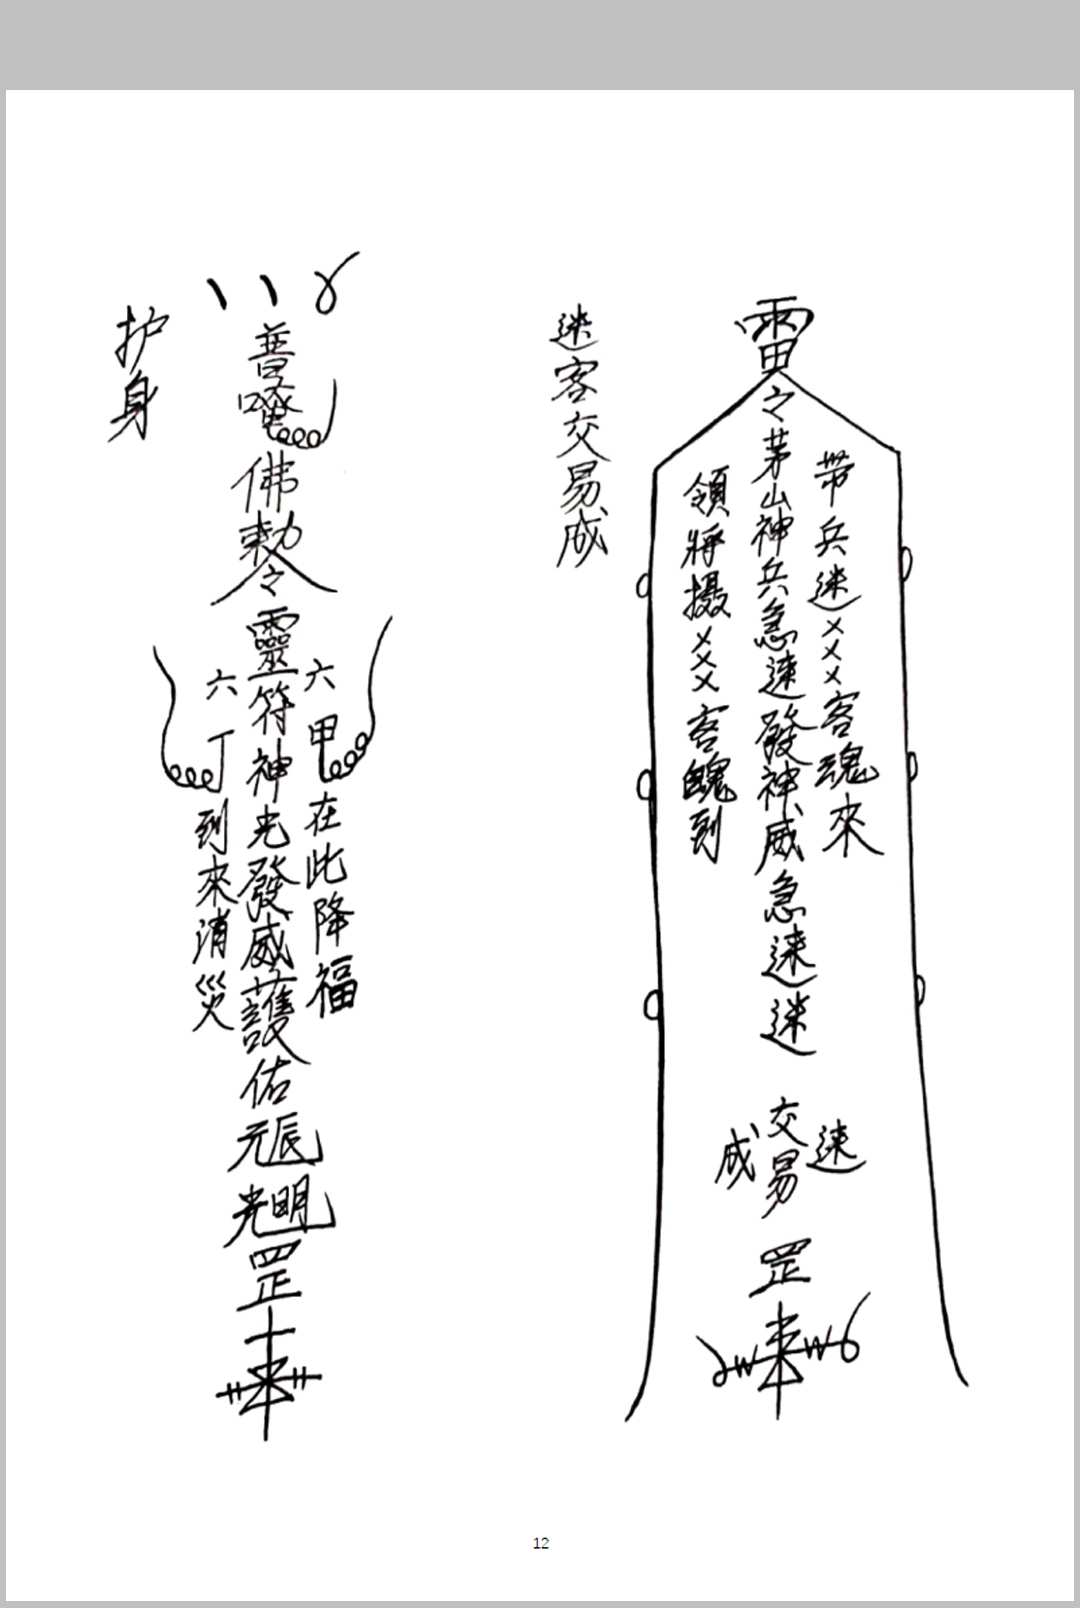 雷
令茅山神兵急速發神威急速迷
带兵迷×××客魂來
領將摄×××客魄到
速
交易
成
罡
迷客交易成
普唵佛勅令靈符神光發威護佑元辰光明罡
六甲在此降福
六丁到來消災
护身
12